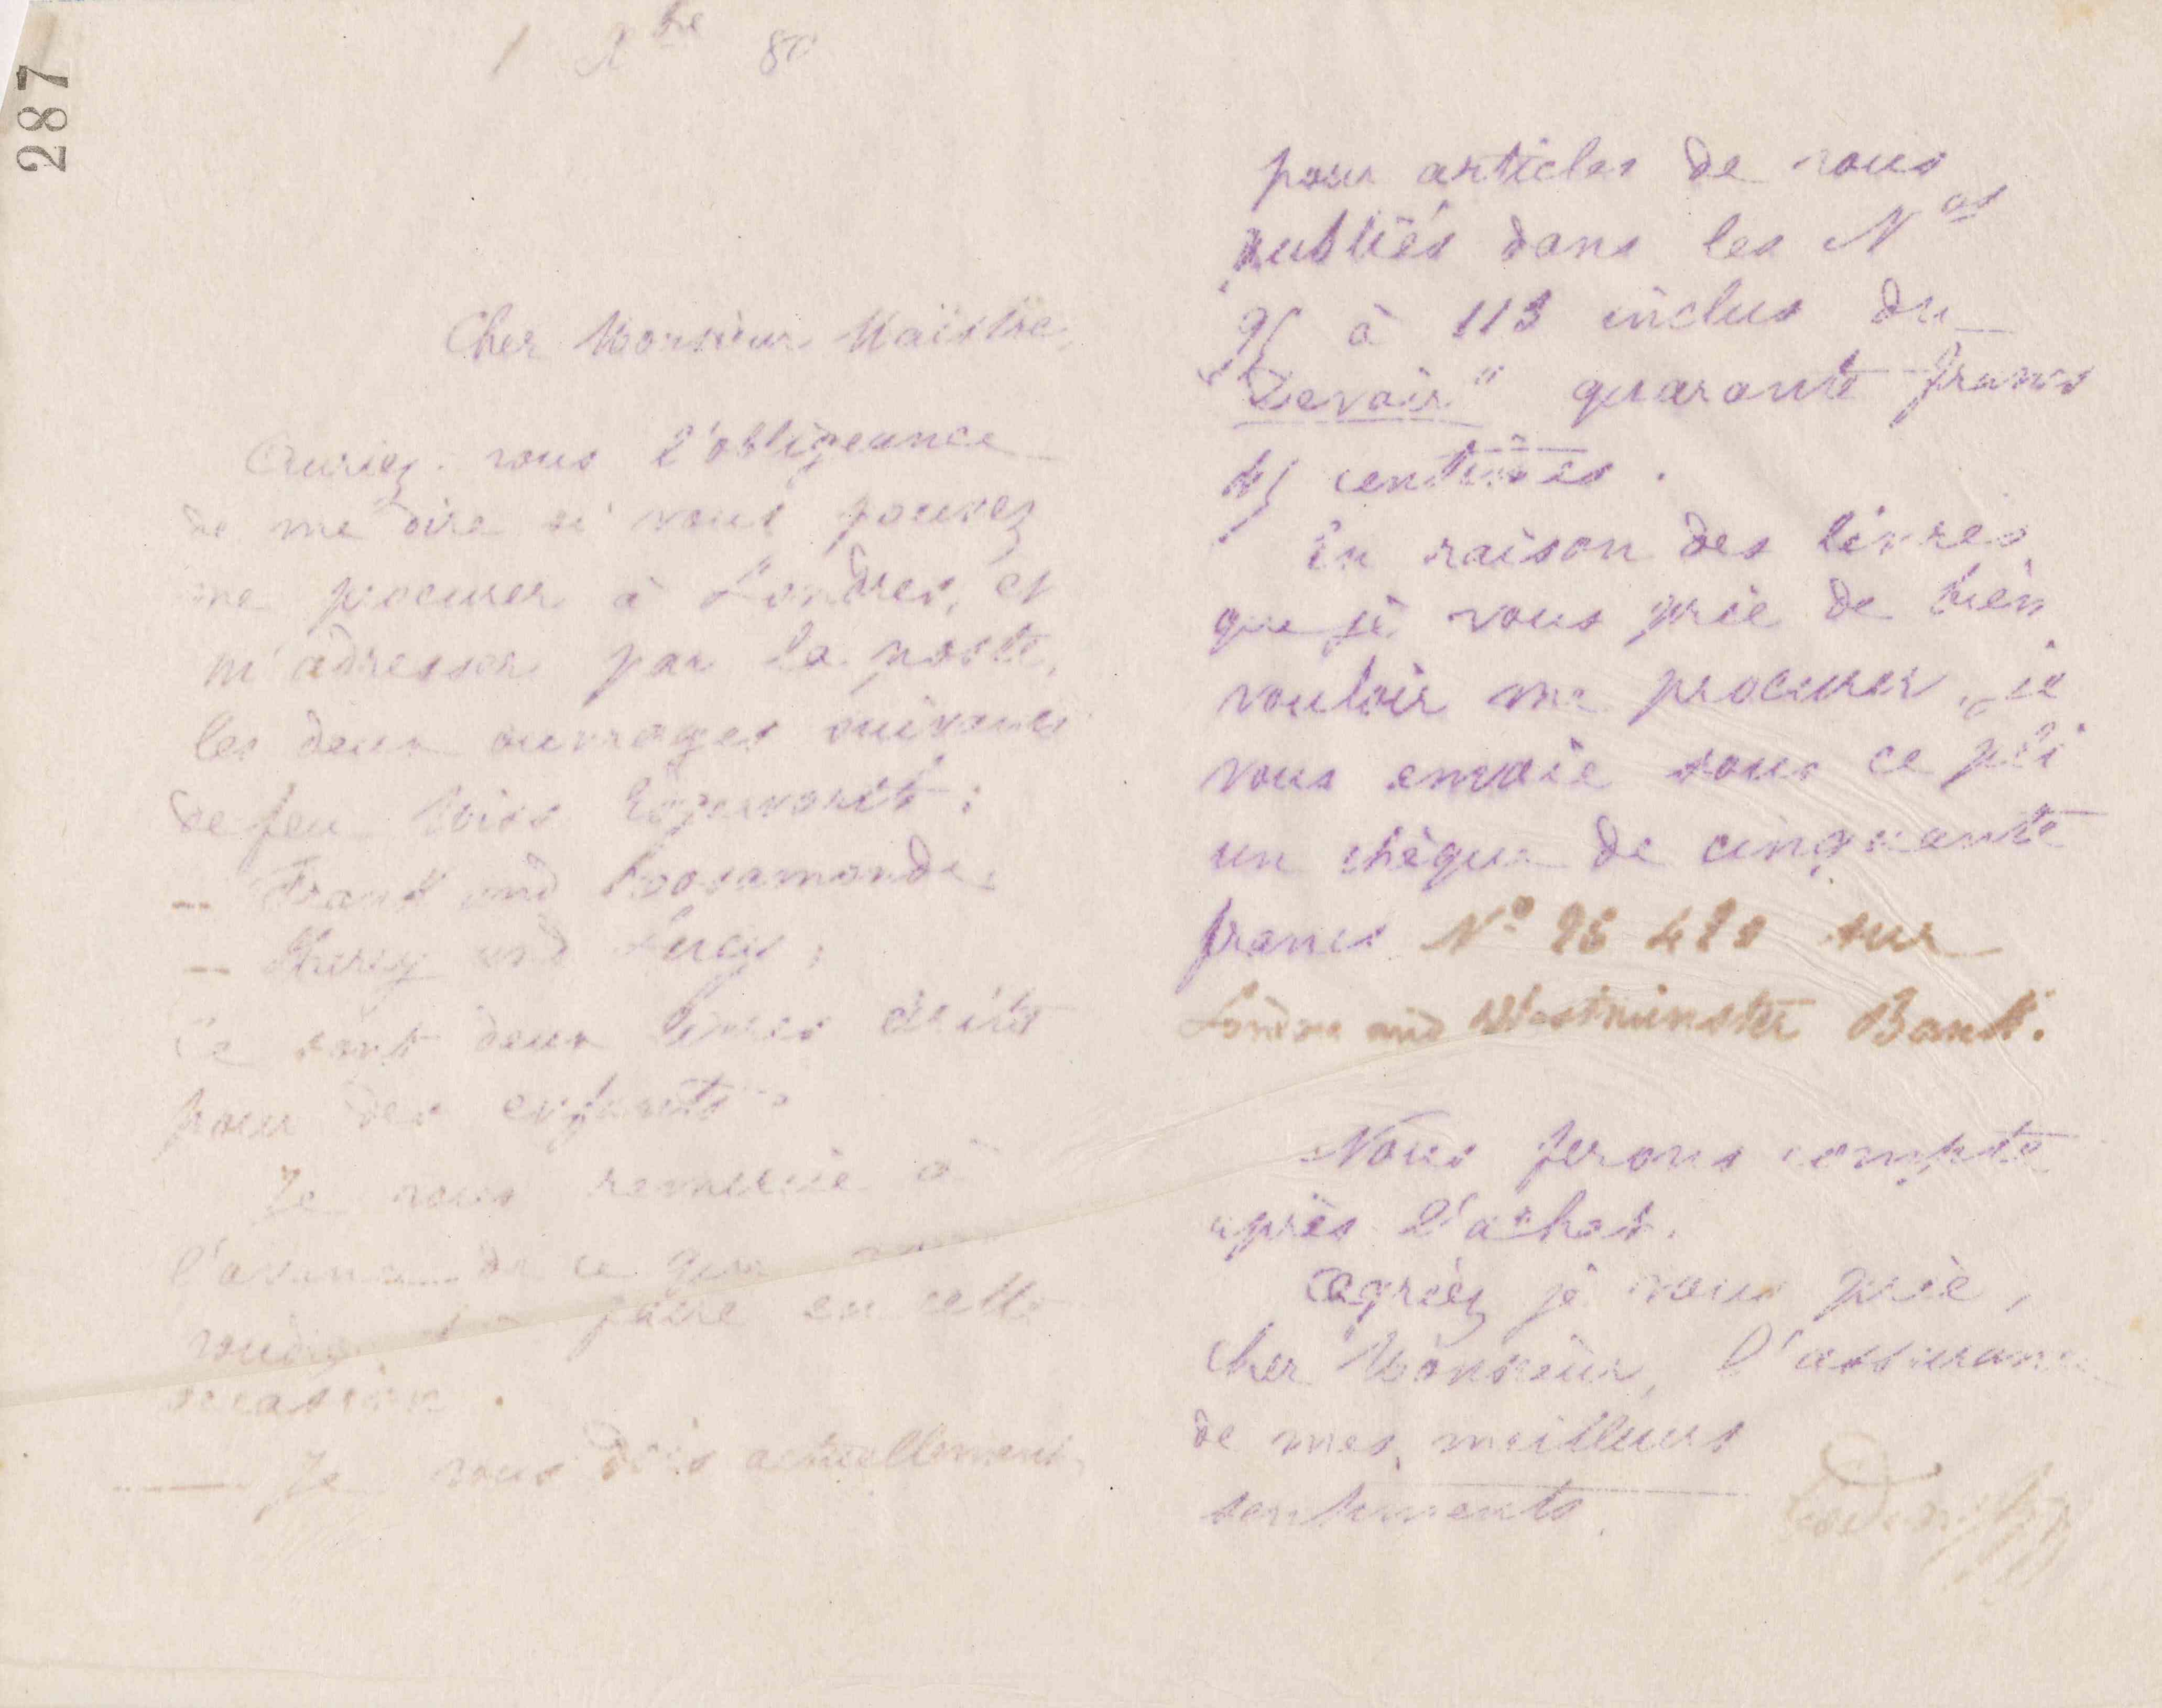 287
1 Xbre 80
Cher Monsieur Maistre,
Auriez-vous l'obligeance
de me dire si vous pouvez
me procurer à Londres, et
m'adresser par la poste,
les deux ouvrages suivants
de feu Miss Edgeworth :
— Frank and Rosamonde,
— Harry and Lucy ;
Ce sont deux livres écrits
pour des enfants.
Je vous remercie à
l'avance de ce que vous
voudrez faire en cette
occasion.
— Je vous dois actuellement,
pour articles de vous
publiés dans les Nos
à 113 inclus du
"Devoir" quarante francs
centimes.
En raison des livres
que je vous prie de bien
vouloir me procurer, je
vous envoie sous ce pli
un chèque de cinquante
francs No sur
London and Westminster Bank.
Nous ferons compte
après l'achat.
Agréez je vous prie,
Cher Monsieur, l'assurance
de mes meilleurs
sentiments.